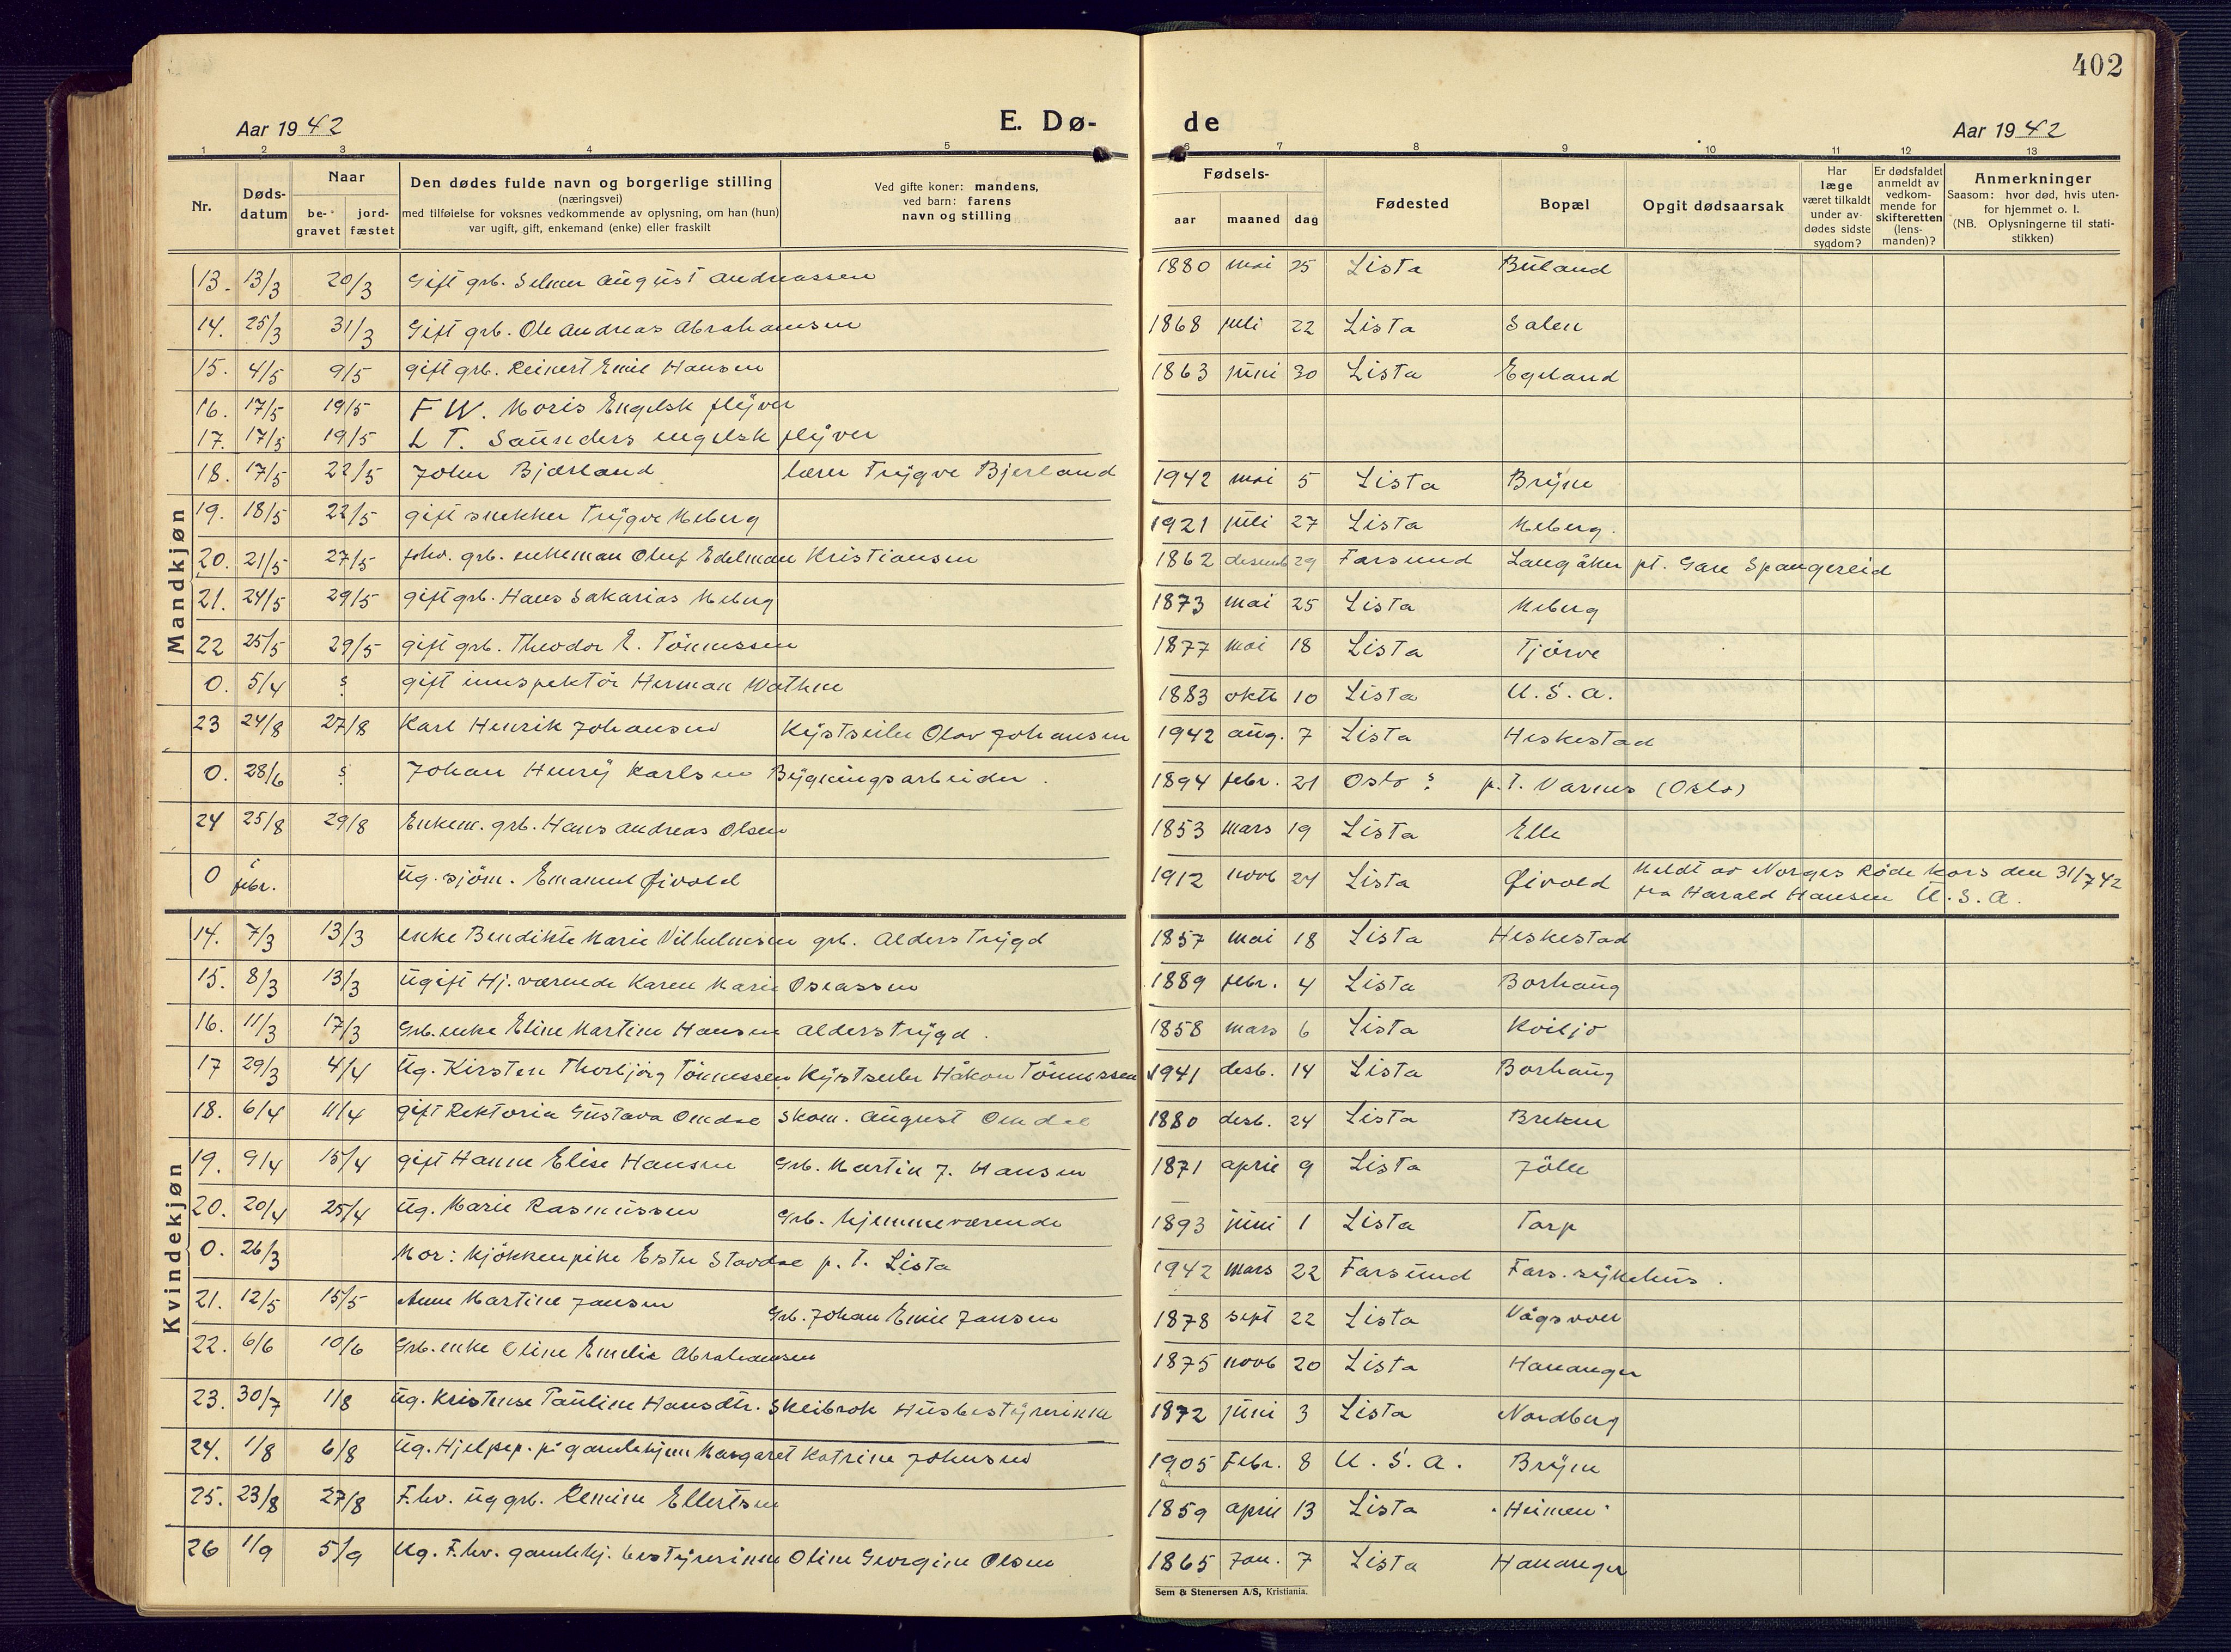 402
Aar 1942
E. Dø-
de
Aar 1942
1 2 3 4 5 6 7 8 9 10 11 12 13
Nr.
Døds-
datum
Naar
be-
gravet
jord-
fæstet
Den dødes fulde navn og borgerlige stilling
(næringsvei)
med tilføielse for voksnes vedkommende av oplysning, om han (hun)
var ugift, gift, enkemand (enke) eller fraskilt
Ved gifte koner: mandens,
ved barn: farens
navn og stilling
Fødsels-
aar maaned dag
Fødested
Bopæl
Opgit dødsaarsak
Har
læge
været tilkaldt
under av-
dødes sidste
sygdom?
Er dødsfaldet
anmeldt av
vedkom-
mende for
skifteretten
(lens-
manden)?
Anmerkninger
Saasom: hvor død, hvis uten-
for hjemmet o. l.
(NB. Oplysningerne til stati-
stikken)
Mandkjøn
13. 13/3 20/3 Gift grb. Selmer August Andreassen 1880 mai 25 Lista Buland
14. 25/3 31/3 Gift grb. Ole Andreas Abrahamsen 1868 juli 22 Lista Salen
15. 4/5 9/5 gift grb. Reinert Emil Hansen 1863 juni 30 Lista Egeland
16. 17/5 19/5 F W. Moris Engelsk flyver
17. 17/5 19/5 L T. Saunders engelsk flyver
18. 17/5 22/5 John Bjærland lærer Trygve Bjerland 1942 mai 5 Lista Bryne
19. 18/5 22/5 gift snekker Trygve Meberg 1921 juli 27 Lista Meberg.
20. 21/5 27/5 fhv. grb. enkeman Oluf Edelman Kristiansen 1862 desemb 29 Farsund Langåker pt. Gare Spangereid
21. 24/5 29/5 gift grb. Hans Sakarias Meberg 1873 mai 25 Lista Meberg
22 25/5 29/5 gift grb. Theodor E. Tönnessen 1877 mai 18 Lista Tjörve
0. 5/4 ? gift innspektör Herman Wathne 1883 oktb 10 Lista U.S.A.
23 24/8 27/8 Karl Henrik Johansen Kystseiler Olav Johansen 1942 aug. 7 Lista Heskestad
0. 28/6 ? Johan Henry Karlsen Bygningsarbeider. 1894 febr. 21 Oslo ? p.T. Varnes (Oslo)
24 25/8 29/8 Enkem. grb. Hans Andreas Olsen 1853 mars 19 Lista Elle
0 i febr. Ug. sjöm. Emanuel Øivold 1912 novb 24 Lista Øivold Meldt av Norges Røde Kors den 31/7 42
fra Harald Hansen U.S.A.
Kvindekjøn
14. 7/3 13/3 enke Bendikte Marie Vilhelmsen grb. Alderstrygd 1857 mai 18 Lista Heskestad
15. 8/3 13/3 ugift Hj. værende Karen Marie Oseassen 1889 febr. 4 Lista Borhaug
16. 11/3 17/3 Grb. enke Eline Martine Hansen alderstrygd. 1858 mars 6 Lista Kviljo
17 29/3 4/4 Ug. Kirsten Thorbjörg Tönnessen Kystseiler Håkon Tönnessen 1941 desb. 14 Lista Borhaug
18. 6/4 11/4 gift Rektoria Gustava Omdal Skom. August Omdal 1880 desb. 24 Lista Brekne
19. 9/4 15/4 gift Hanne Elise Hansen Grb. Martin J. Hansen 1871 april 9 Lista Jölle
20. 20/4 25/4 Ug. Marie Rasmussen Grb. hjemmeværende 1893 juni 1 Lista Torp
0. 26/3 Mor: Kjökkenpike Ester Stavdal p. T. Lista 1942 mars 22 Farsund Fars. sykehus.
21. 12/5 15/5 Anne Martine Jansen Grb. Johan Emil Jansen 1878 sept 22 Lista Vågsvoll
22. 6/6 10/6 Grb. enke Oline Emelie Abrahamsen 1875 novb 20 Lista Hananger
23. 30/7 1/8 Ug. Kristense Pauline Hansdtr. Skeibrok Husbestyrerinne 1872 juni 3 Lista Nordberg
24. 1/8 6/8 Ug. Hjelpep. på gamlehjem Margaret Katrine Johnsen 1905 Febr. 8 U.S.A. Bryne
25. 23/8 27/8 F.hv. Ug grb. Remine Ellertsen 1859 april 13 Lista "Heimen"
26 1/9 5/9 Ug. F.hv. gamlehj. bestyrerinne Oline Georgine Olsen 1865 Jan. 7 Lista Hananger
Sem & Stenersen A/S, Kristiania.